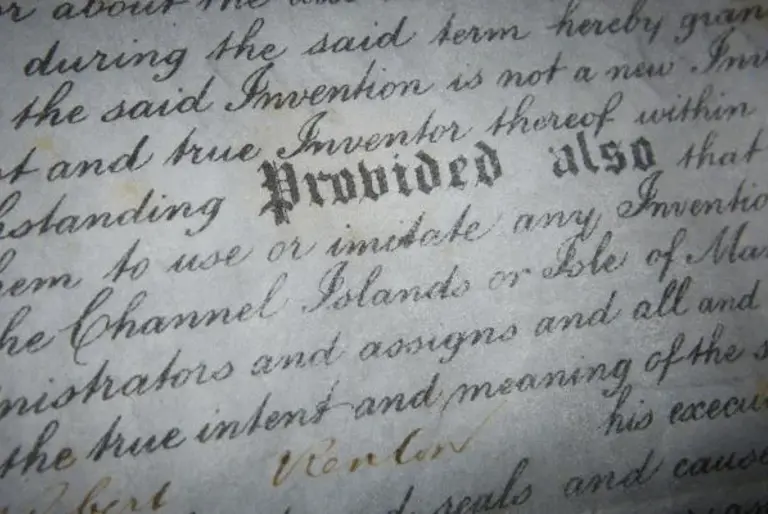 or about the
during the said term hereby gran
the said Invention is not a new Inv
t and true Inventor thereof within
hstanding Provided also that
hem to use or imitate any Inventio
he Channel Islands or Isle of Ma
nistrators and assigns and all and
the true intent and meaning of the s
his execu
obert
seals and cause